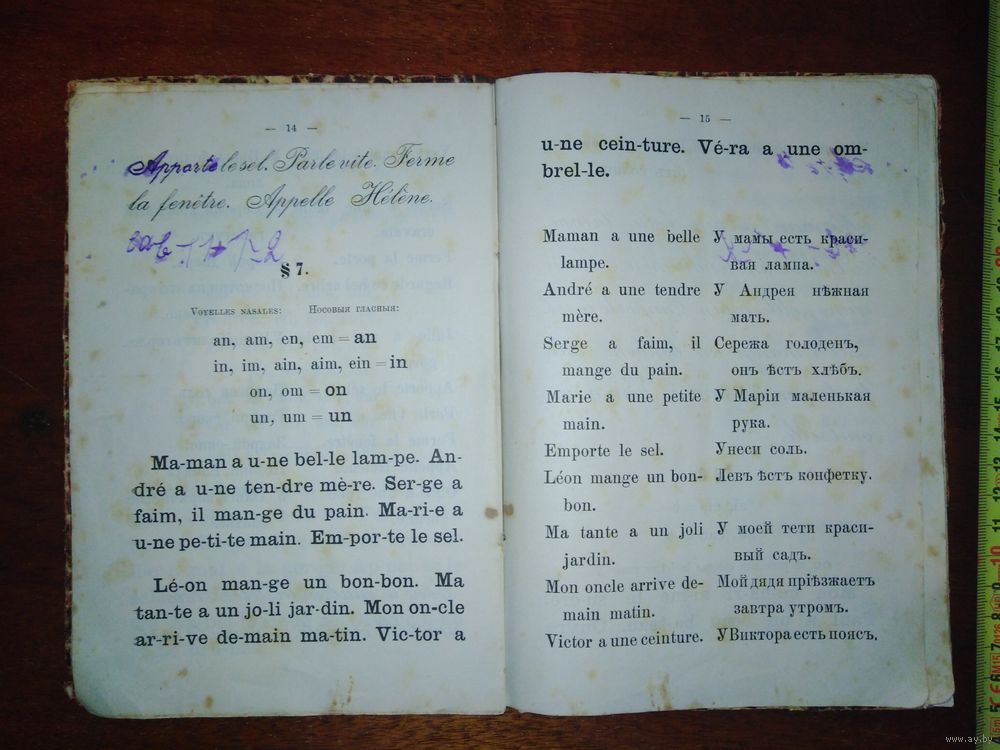 — 14 —
Apporte le sel. Parle vite. Ferme
la fenêtre. Appelle Hélène.
§ 7.
Voyelles nasales: Носовыя гласныя:
an, am, en, em = an
in, im, ain, aim, ein = in
on, om = on
un, um = un
Ma-man a u-ne bel-le lam-pe. An-
dré a u-ne ten-dre mè-re. Ser-ge a
faim, il man-ge du pain. Ma-ri-e a
u-ne pe-ti-te main. Em-por-te le sel.
Lé-on man-ge un bon-bon. Ma
tan-te a un jo-li jar-din. Mon on-cle
ar-ri-ve de-main ma-tin. Vic-tor a
— 15 —
u-ne cein-ture. Vé-ra a une om-
brel-le.
Maman a une belle У мамы есть краси-
lampe. вая лампа.
André a une tendre У Андрея нѣжная
mère. мать.
Serge a faim, il Сережа голоденъ,
mange du pain. онъ ѣстъ хлѣбъ.
Marie a une petite У Маріи маленькая
main. рука.
Emporte le sel. Унеси соль.
Léon mange un bon- Левъ ѣстъ конфетку.
bon.
Ma tante a un joli У моей тети краси-
jardin. вый садъ.
Mon oncle arrive de- Мой дядя пріѣзжаетъ
main matin. завтра утромъ.
Victor a une ceinture. У Виктора есть поясъ.
www.ay.by